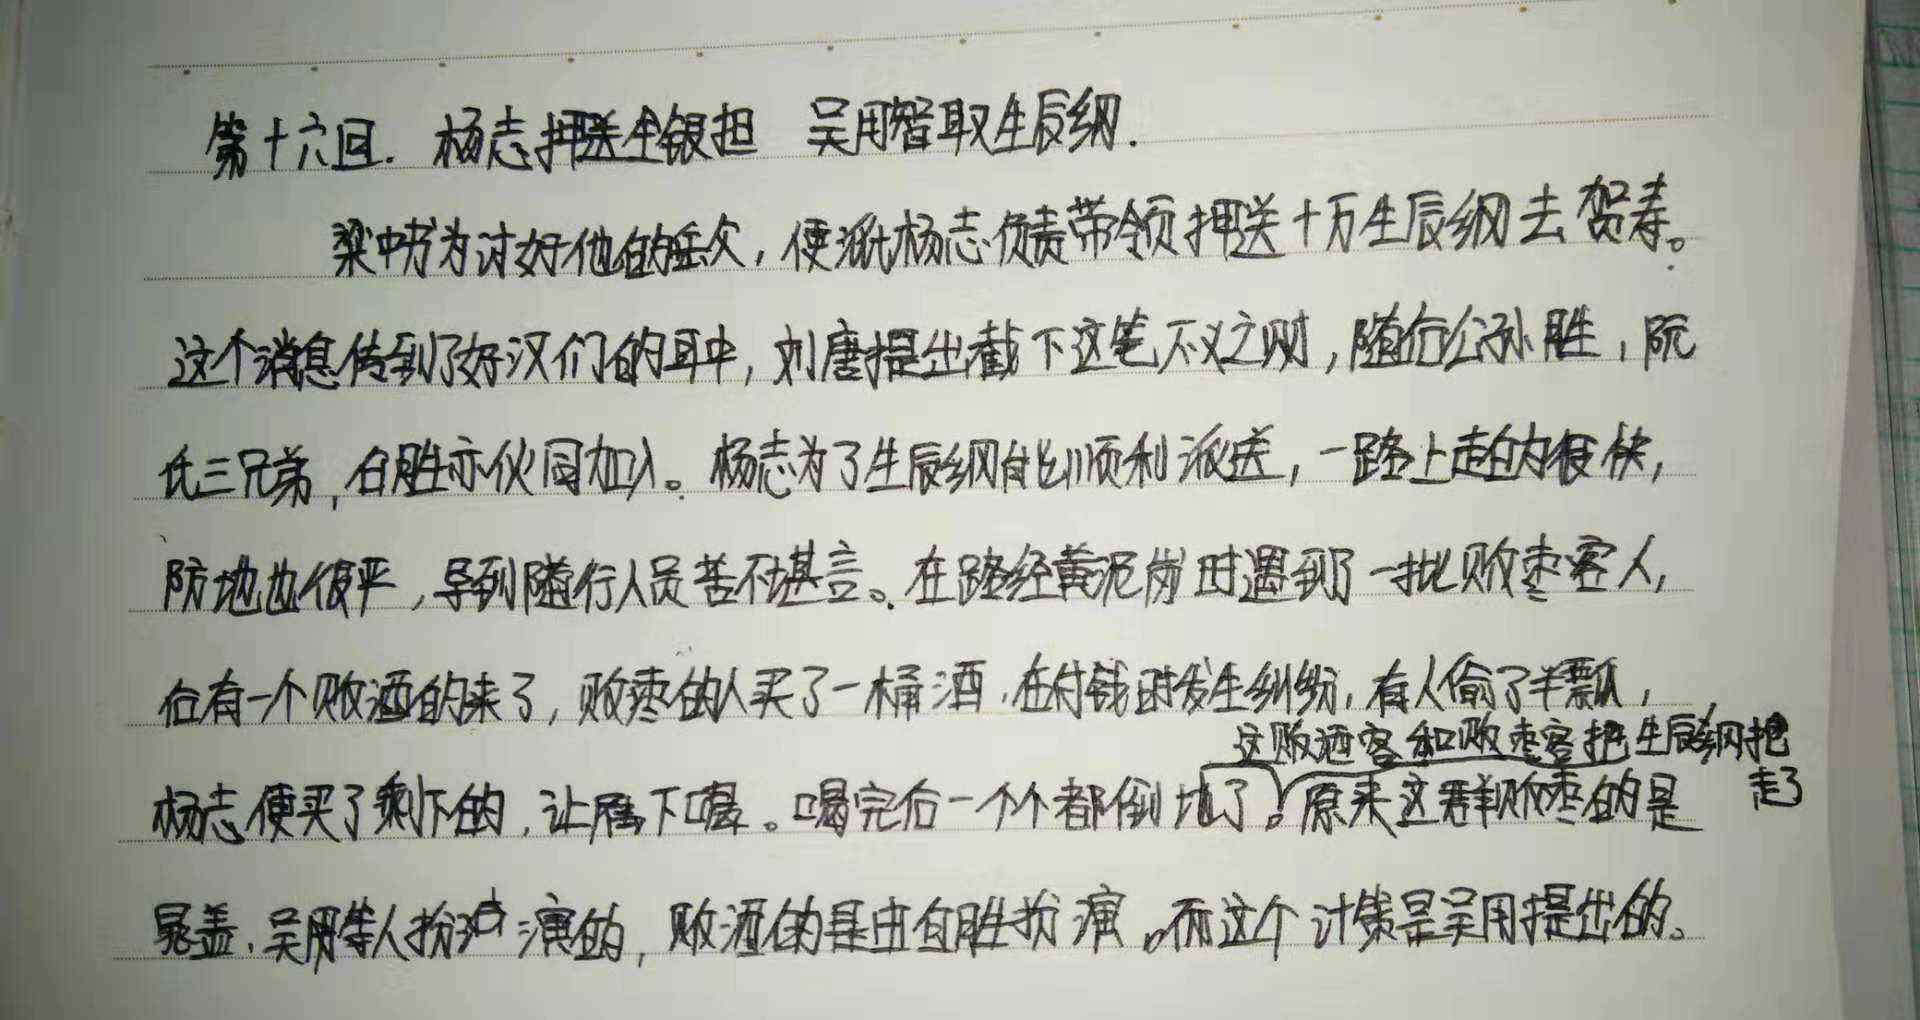 第十六回.杨志押送生银担 吴用智取生辰纲.
梁中书为讨好他的岳父,便派杨志负责带领押送十万生辰纲去贺寿。
这个消息传到了好汉们的耳中,刘唐提出截下这笔不义之财,随行公孙胜,阮
氏三兄弟,白胜亦伙同加入。杨志为了生辰纲能顺利派送,一路上走的很快,
防地也很严,导到随行人员苦不堪言。在路经黄泥岗时遇到了一批败枣客人,
后有一个败酒的来了,败枣的人买了一桶酒.在付钱时发生纠纷,有人偷了半瓢,
这败酒客和败枣客把生辰纲抱
走了
杨志便买了剩下的,让属下喝。喝完后一个个都倒地了。原来这群败枣的是
晁盖.吴用等人扮演的,败酒的是由白胜扮演。而这个计策是吴用提出的。